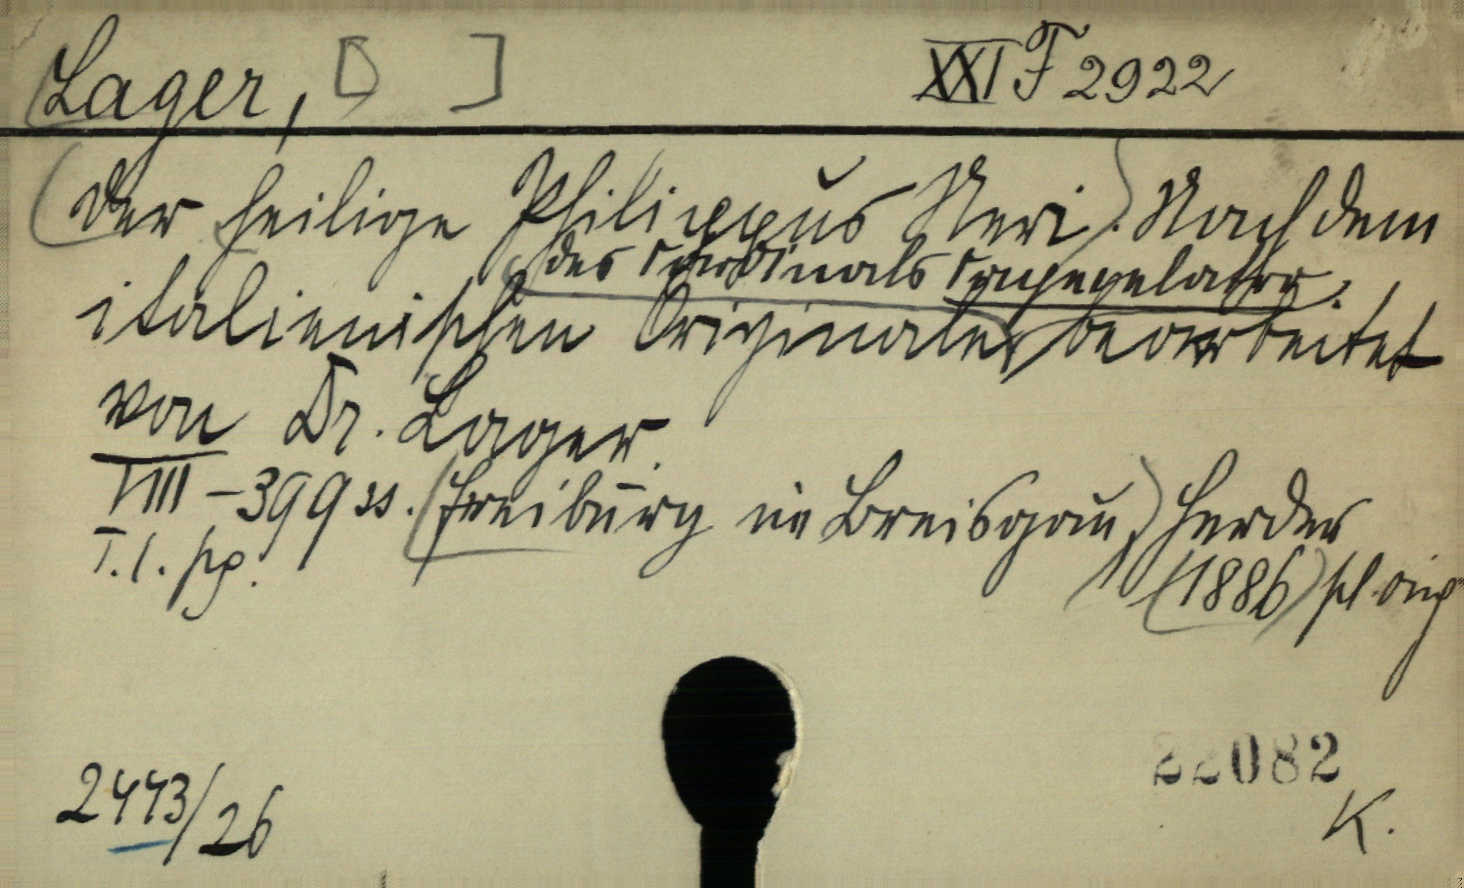 Lager, [ ]
XXI F 2922
(Der heilige Philippus Neri). Nach dem
des Cardinals Capecelatro.
italienischen Originale bearbeitet
von Dr. Lager.
VIII-399 ss. (Freiburg im Breisgau,) Herder
T. l. pg. (1886)
2443/26
22082
K.